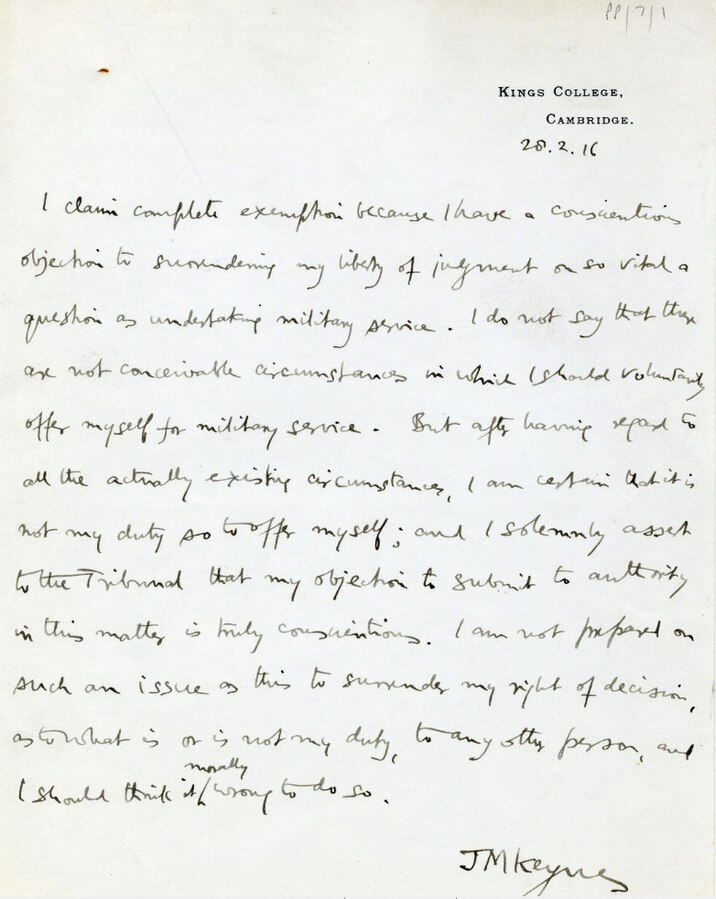 PP/7/1
KINGS COLLEGE,
CAMBRIDGE.
28.2.16
I claim complete exemption because I have a conscientious
objection to surrendering my liberty of judgment on so vital a
question as undertaking military service. I do not say that there
are not conceivable circumstances in which I should voluntarily
offer myself for military service. But after having regard to
all the actually existing circumstances, I am certain that it is
not my duty so to offer myself; and I solemnly assert
to the Tribunal that my objection to submit to authority
in this matter is truly conscientious. I am not prepared on
such an issue as this to surrender my right of decision,
as to what is or is not my duty, to any other person, and
morally
I should think it wrong to do so.
JMKeynes